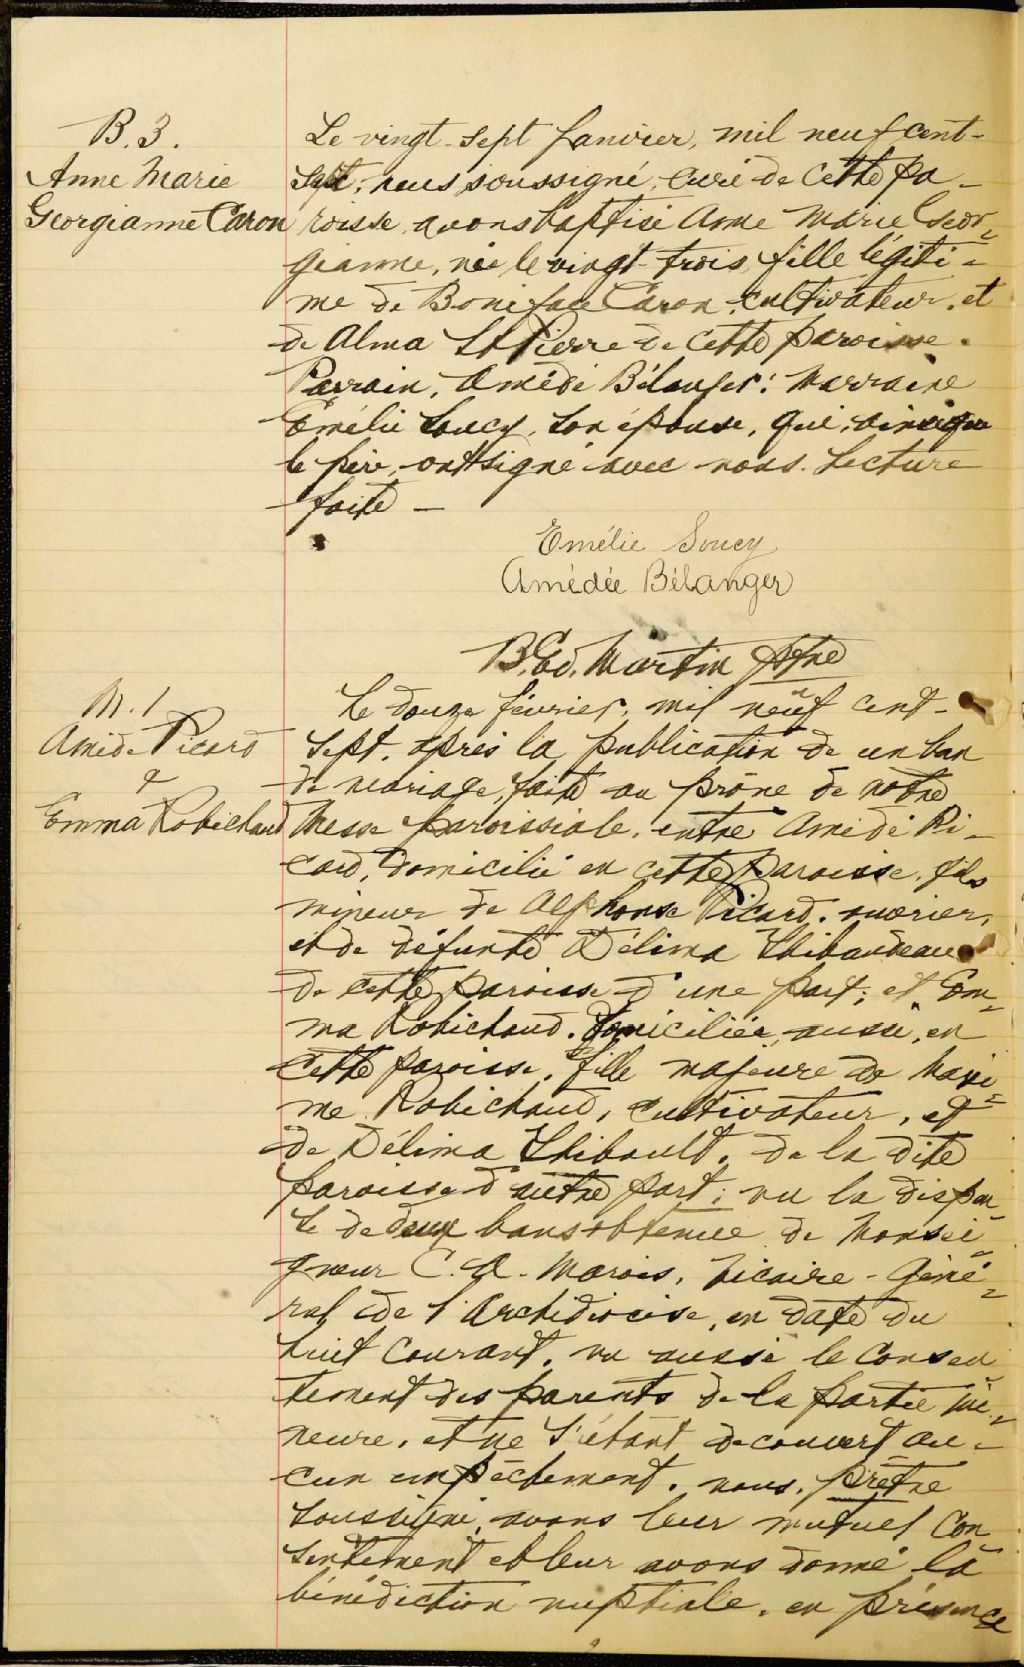 B. 3.
Anne Marie
Georgianne Caron
Le vingt-sept Janvier, mil neuf cent-
sept, nous soussigné, curé de cette pa-
roisse avons baptisé Anne Marie Geor-
gianne, née le vingt-trois, fille légiti-
me de Boniface Caron, cultivateur, et
de Alma St Pierre de cette paroisse.
Parrain, Amédé Bélanger; Marraine
Emélie Soucy, son épouse, qui, ainsi que
le père, ont signé avec nous. Lecture
faite —
Emélie Soucy
Amédée Bélanger
B. Ed. Martin Ptre
M. 1
Amédé Picard
&
Emma Robichaud
Le douze février, mil neuf cent-
sept, après la publication de un ban
de mariage, faite au prône de notre
Messe paroissiale, entre Amédé Pi-
card, domicilié en cette paroisse, fils
mineur de Alphonse Picard, ouvrier,
et de défunte Délima Thibaudeau
de cette paroisse d'une part; et Em-
ma Robichaud, domiciliée, aussi, en
cette paroisse, fille majeure de Maxi-
me Robichaud, cultivateur, et
de Délima Thibault, de la dite
paroisse d'autre part; vu la dispen-
se de deux bans obtenue de Monsei-
gneur C. A. Marois, Vicaire-Géné-
ral de l'Archidiocèse, en date du
huit courant, vu aussi le consen-
tement des parents de la partie mi-
neure, et ne s'étant découvert au-
cun empêchement, nous, prêtre
soussigné, avons leur mutuel con-
sentement et leur avons donné la
bénédiction nuptiale, en présence